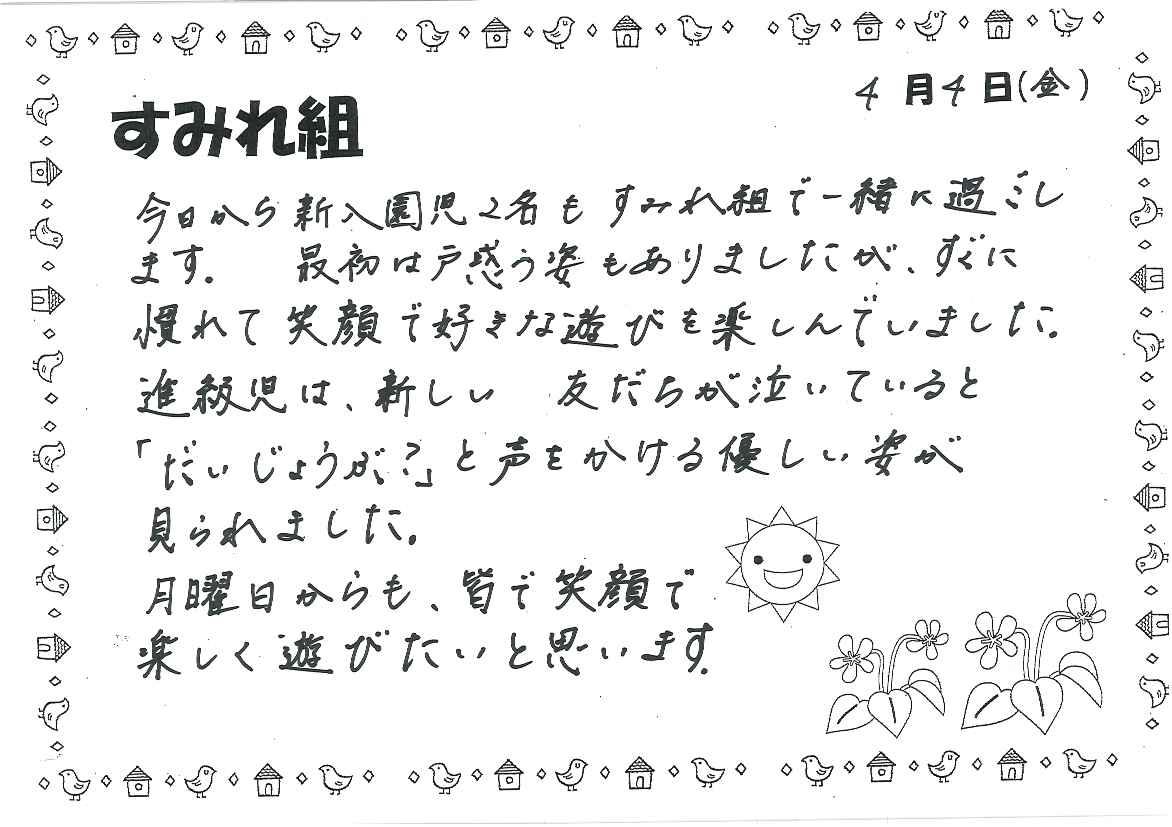 4月4日(金)
すみれ組
今日から新入園児2名もすみれ組で一緒に過ごし
ます。 最初は戸惑う姿もありましたが、すぐに
慣れて笑顔で好きな遊びを楽しんでいました。
進級児は、新しい 友だちが泣いていると
「だいじょうぶ?」と声をかける優しい姿が
見られました。
月曜日からも、皆で笑顔で
楽しく遊びたいと思います。